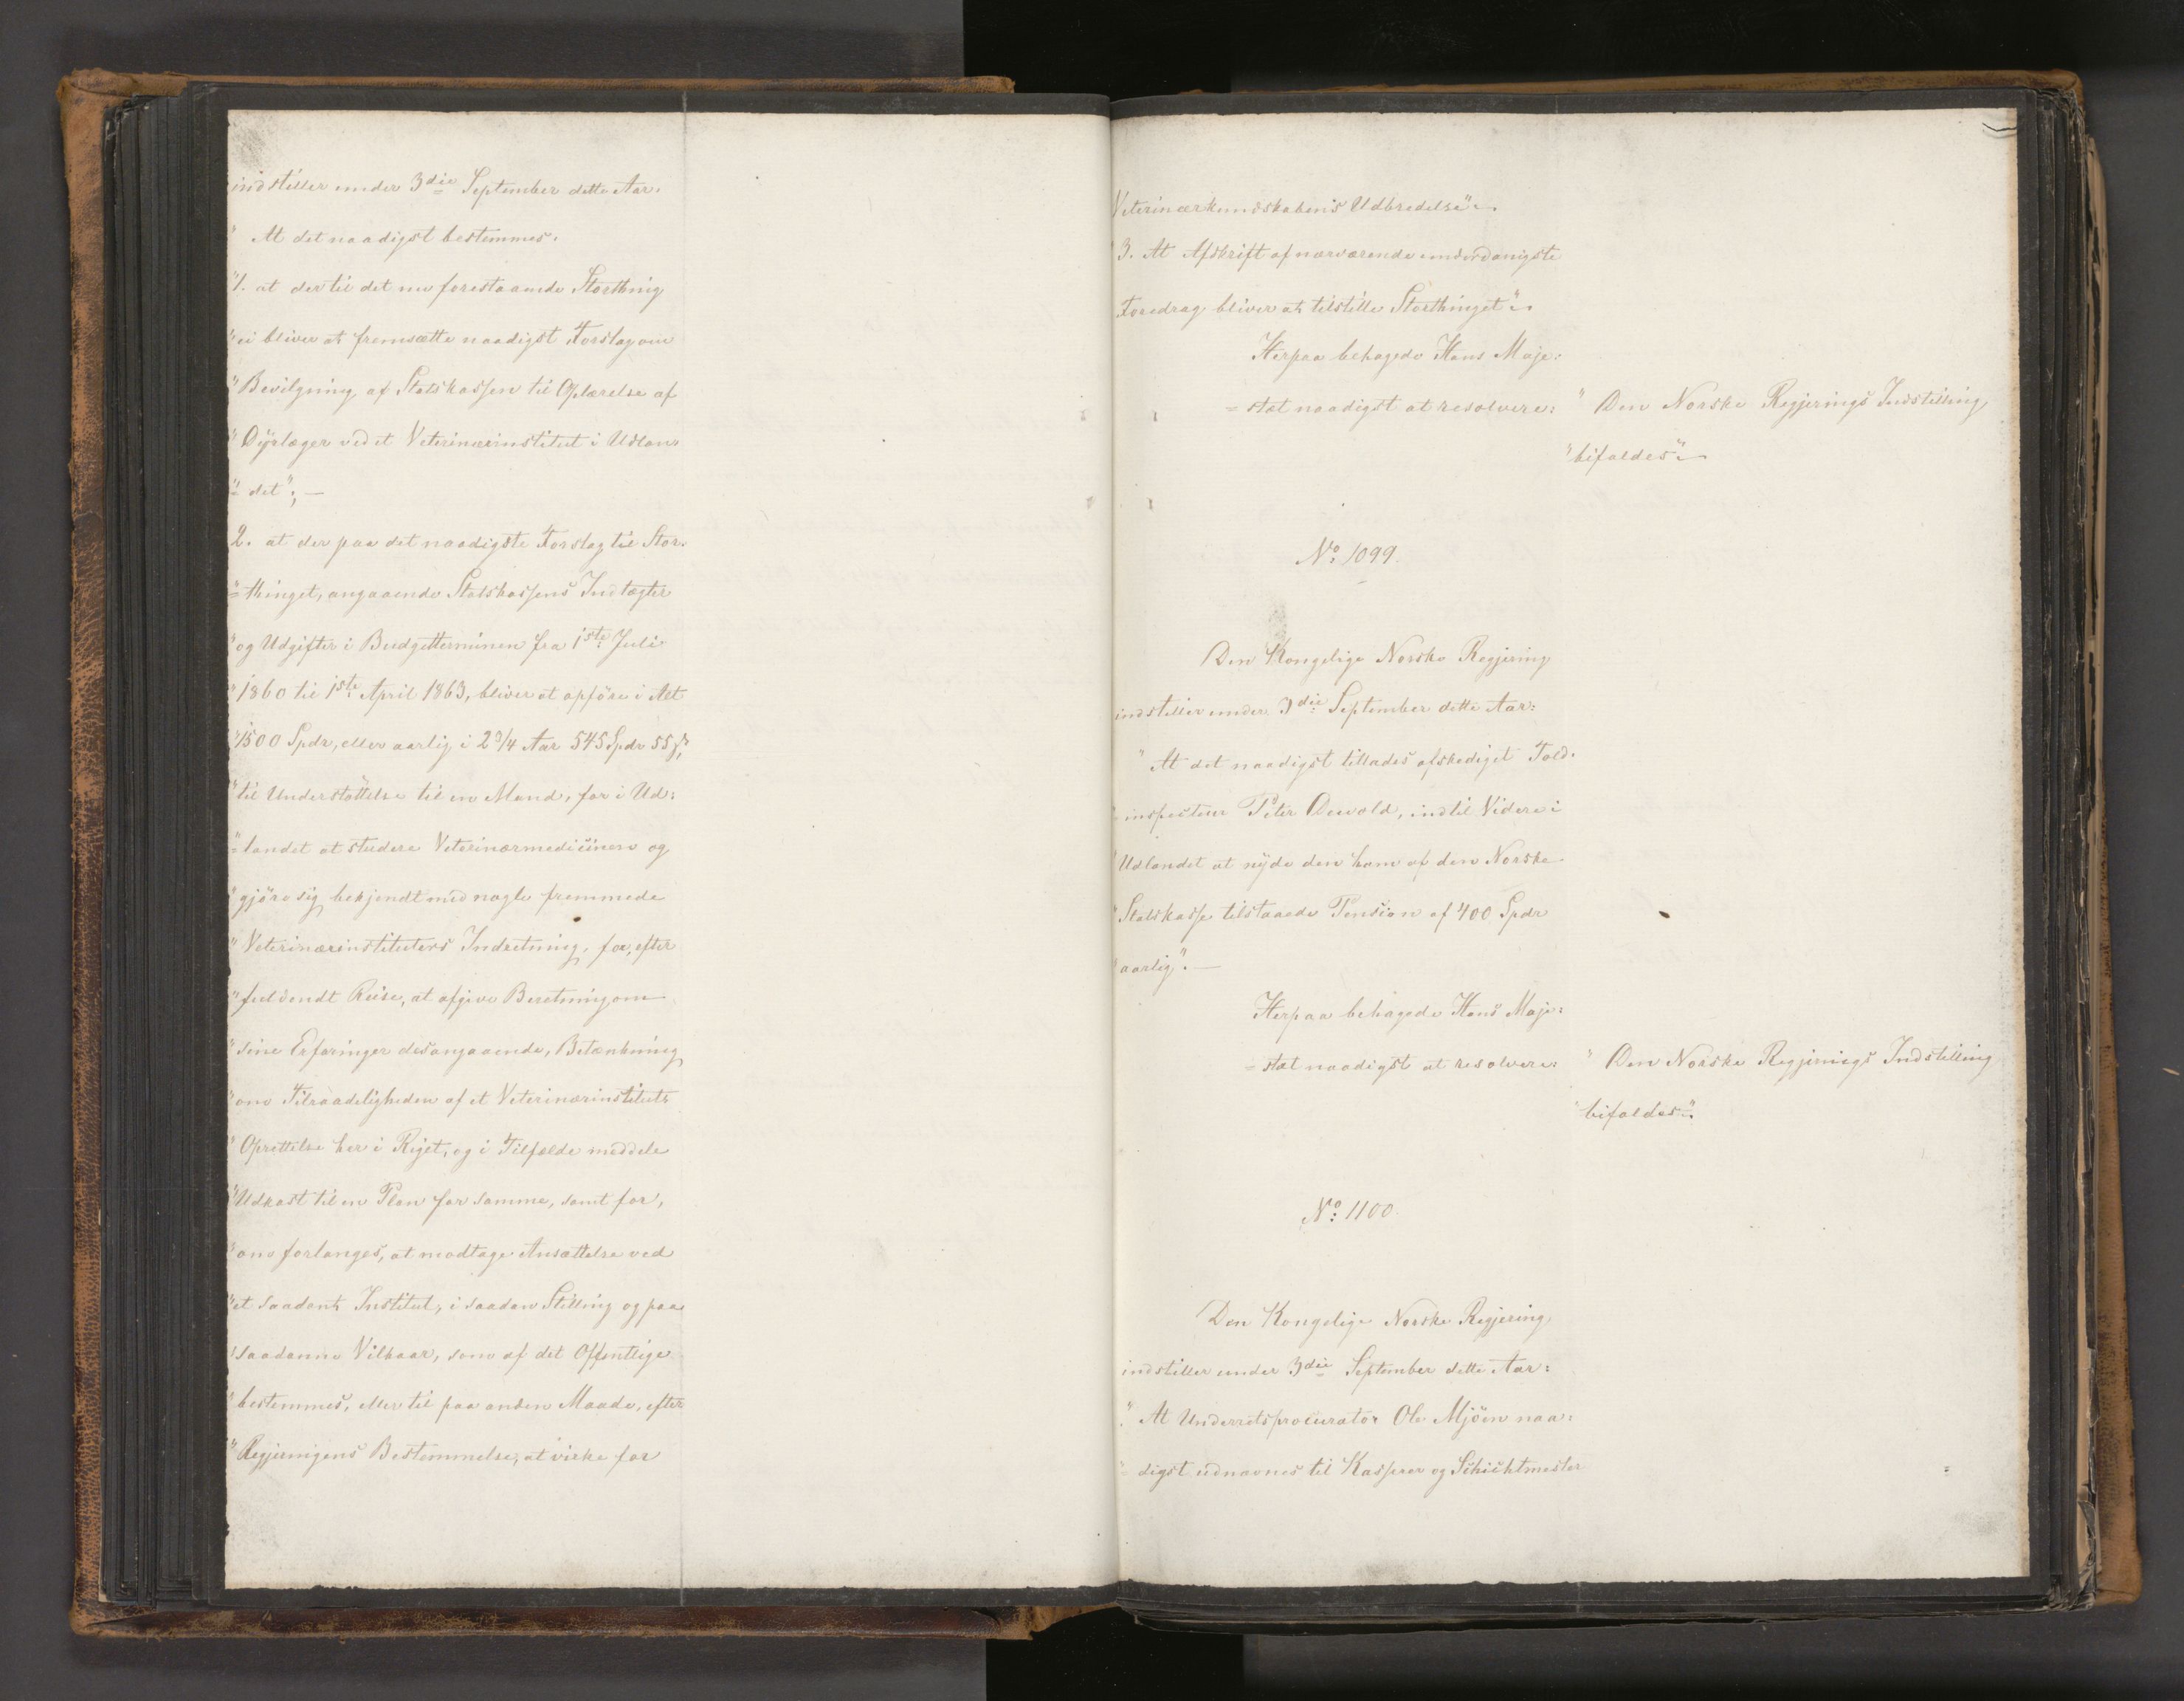 indstiller under 3die September dette Aar.
" At det naadigst bestemmes.
"1. at der til det nu forestaaende Storthing
"ei bliver at fremsætte naadigst Forslag om
"Bevilgning af Statskassen til Oplærelse af
"Dyrlæger ved et Veterinærinstitut i Udlan-
"= det"; —
2. at der paa det naadigste Forslag til Stor-
"= thinget, angaaende Statskassens Indtægter
"og Udgifter i Budgetterminen fra 1ste Juli
"1860 til 1ste April 1863, bliver at opføre i Alt
"1500 Spdr, eller aarlig i 2 3/4 Aar 545 Spdr 55 ß,
"til Understøttelse til en Mand, for i Ud:
"= landet at studere Veterinærmedicinen og
"gjøre sig bekjendt med nogle fremmede
"Veterinærinstituters Indretning, for, efter
"fuldendt Reise, at afgive Beretning om
"sine Erfaringer desangaaende, Betænkning
"om Tilraadeligheden af et Veterinærinstituts
"Oprettelse her i Riget, og i Tilfælde meddele
"Udkast til en Plan for samme, samt for,
"om forlanges, at modtage Ansættelse ved
"et saadant Institut, i saadan Stilling og paa
"saadanne Vilkaar, som af det Offentlige
"bestemmes, eller til paa anden Maade, efter
"Regjeringens Bestemmelse, at virke for
Veterinærkundskabens Udbredelse".
"3. At Afskrift af nærværende underdanigste
Foredrag bliver at tilstille Storthinget".
Herpaa behagede Hans Maje:
= stæt naadigst at resolvere: " Den Norske Regjerings Indstilling
"bifaldes"
No 1099.
Den Kongelige Norske Regjering
indstiller under 3die September dette Aar:
" At det naadigst tillades afskediget Told-
"= inspecteur Peter Dewold, indtil Videre i
"Udlandet at nyde den ham af den Norske
"Statskasse tilstaaede Pension af 400 Spdr
"aarlig". —
Herpaa behagede Hans Maje:
= stæt naadigst at resolvere: " Den Norske Regjerings Indstilling
"bifaldes".
No: 1100.
Den Kongelige Norske Regjering
indstiller under 3die September dette Aar:
" At Underretsprocurator Ole Mjøen naa:
"= digst udnævnes til Kasserer og Schichtmester